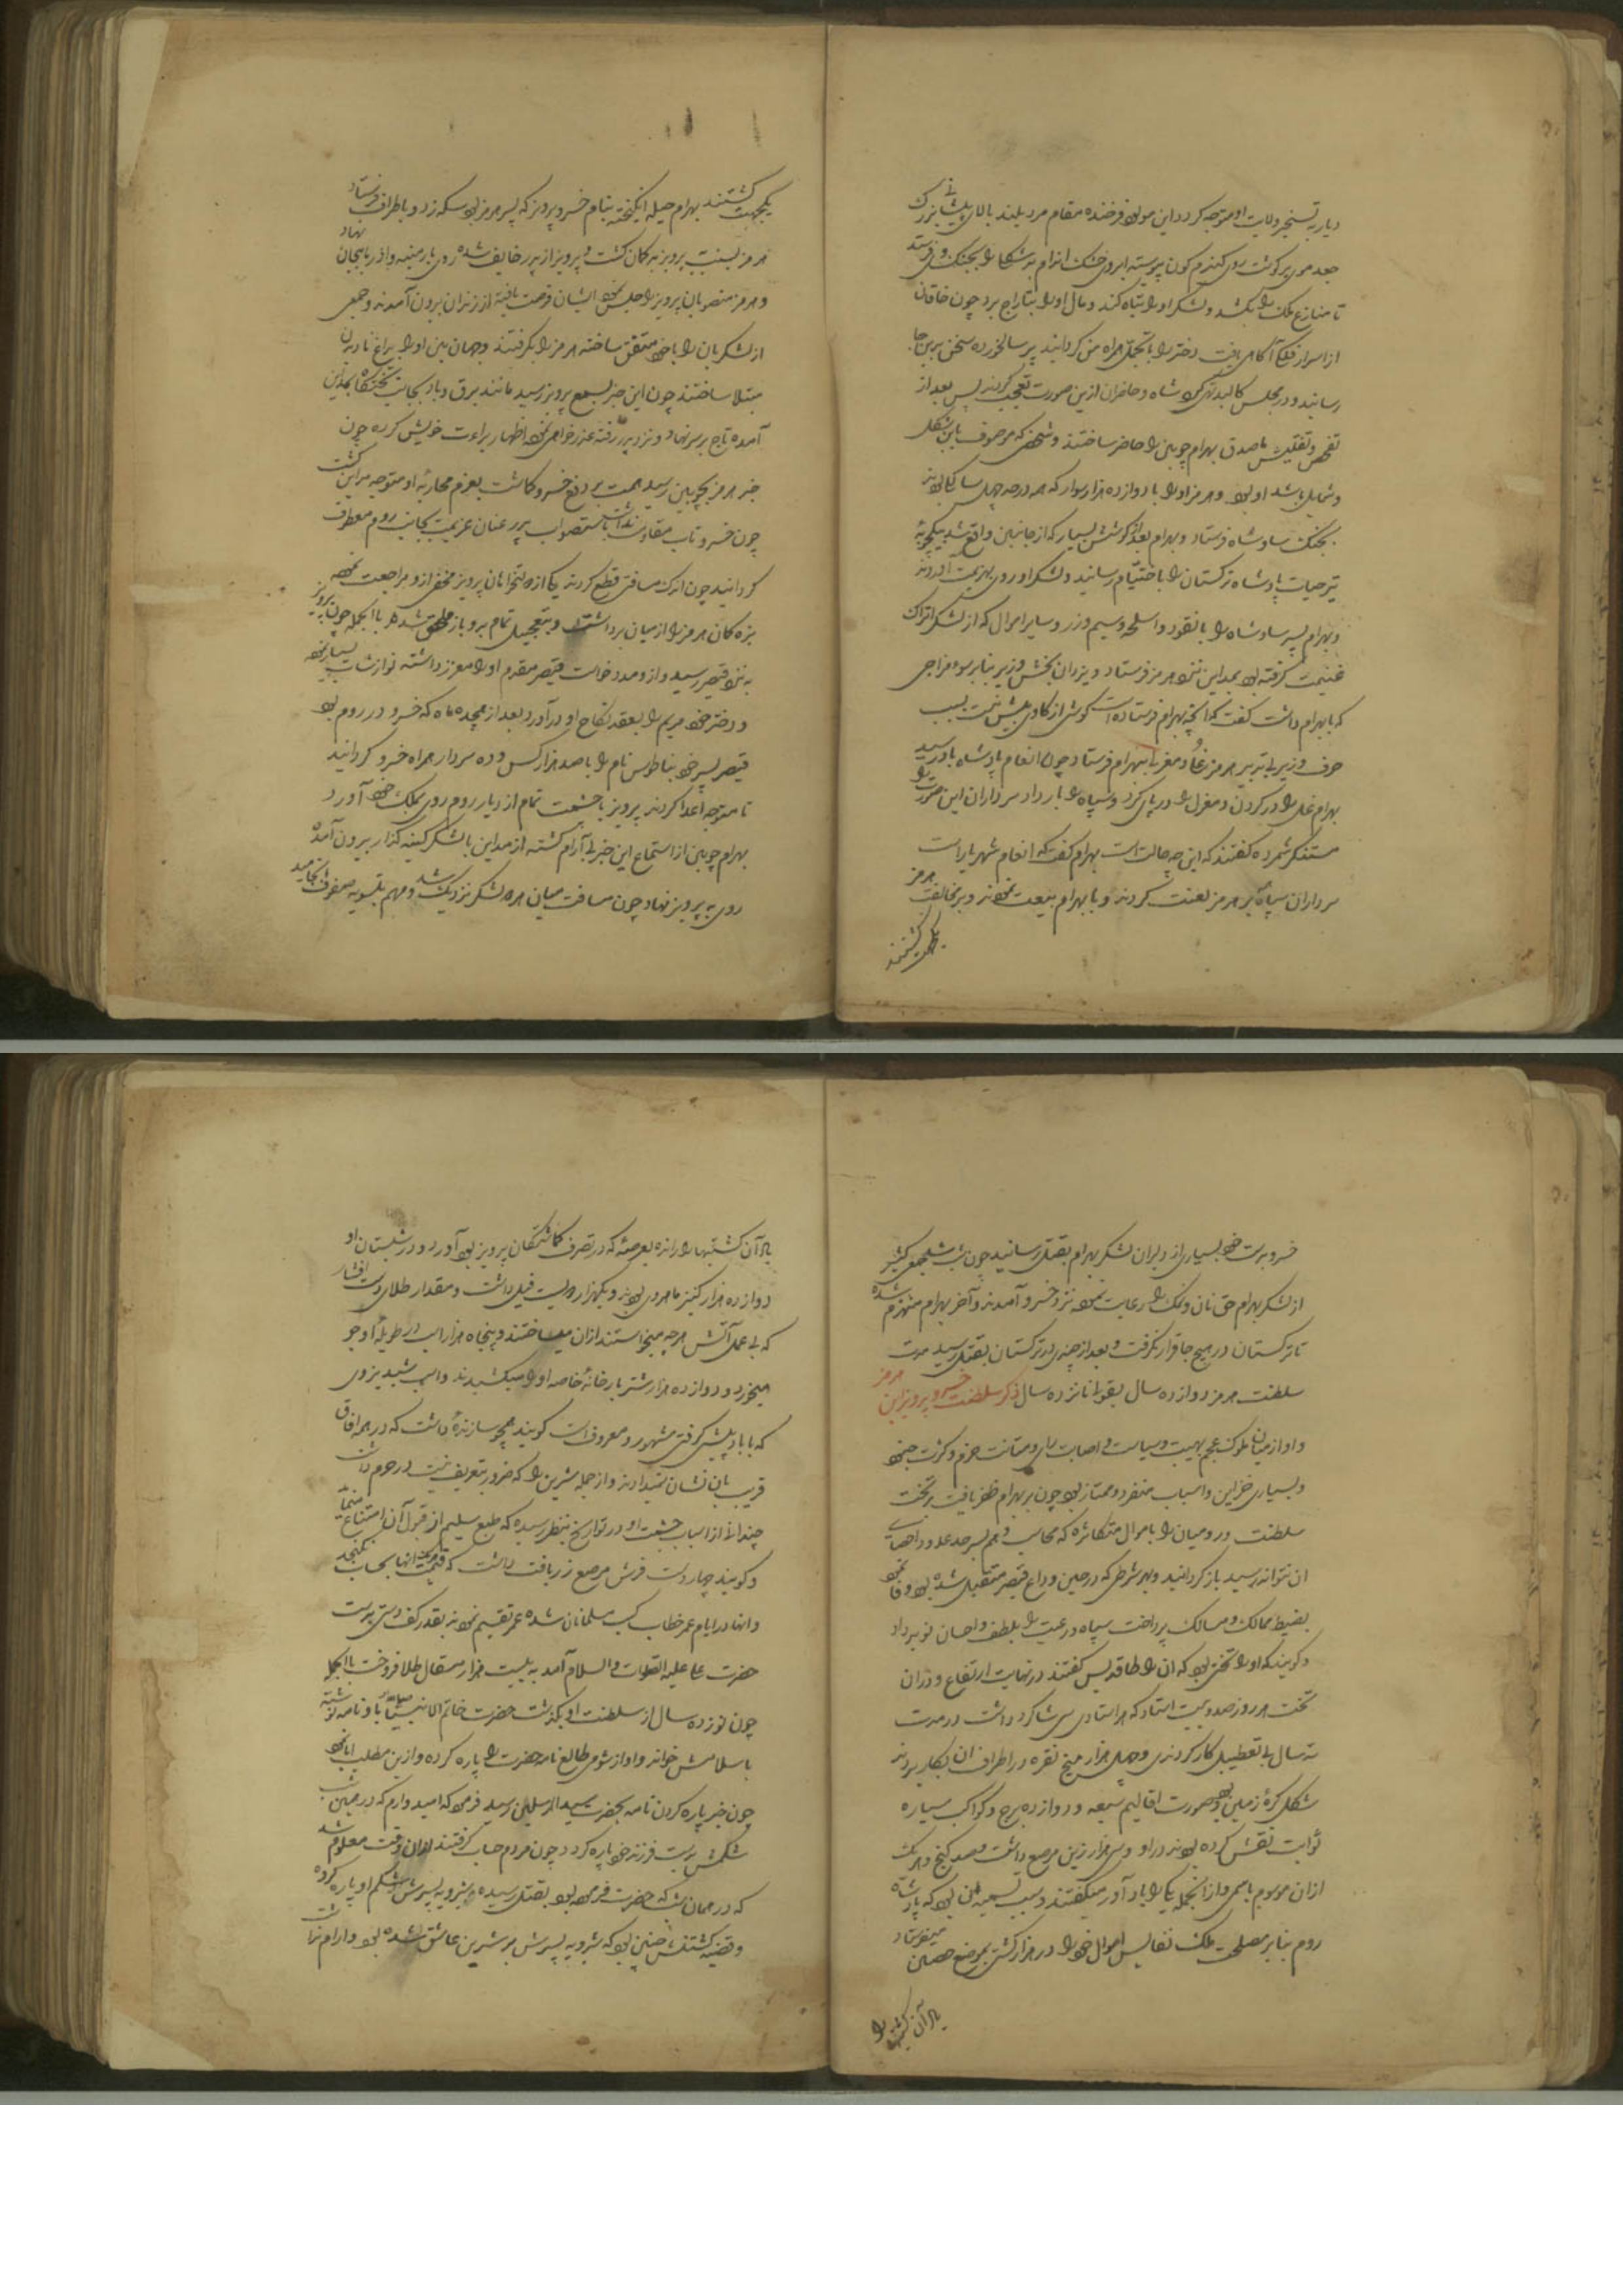 دیار به تسخیر ولایت او متوجه کردد این مولود فرخنده مقام مرد بلند بالای پیشانی بزرک
جعد موی پر کوشت روی کندم کون پیوسته ابروی خشک اندام بدشکل را بجنک وی فرستد
تا منازع ملک را بکشد و لشکر او را تباه کند و مال او را بتاراج برد چون خاقان
از اسرار فلکی آکاهی یافت دختر را با تجمل همراه من کردانید پیر سالخورده سخن برین جا
رسانید و در مجلس کالبد تهی کرد شاه و حاضران ازین صورت تعجب کردند پس بعد از
تفحص و تفتیش ما صدق بهرام چوبین را حاضر ساختند و شخصی که موصوف باین شکل
و شمایل باشد او بود و هرمز او را با دوازده هزار سوار که همه در حد چهل سالکی بودند
بجنک ساوه شاه فرستاد و بهرام بعد از کوشش بسیار که از جانبین واقع شد بیکچوبه
تیر حیات پادشاه ترکستان را باختتام رسانید و لشکر او روی بهزیمت آوردند
و بهرام پسر ساوه شاه را با نقود و اسلحه و سیم و زر و سایر اموال که از لشکر اتراک
غنیمت کرفته بود بمداین نزد هرمز فرستاد و یزدان بخش وزیر بنا بر سوء مزاجی
که با بهرام داشت کفت که آنچه بهرام فرستاده است کوشی از کاوی بیش نیست بسبب
حرف وزیر بی تدبیر هرمز غل و مغزلی به بهرام فرستاد چون انعام پادشاه بدو رسید
بهرام غل را در کردن و مغزل را در پای کرد و سپاه را بار داد سرداران این صورت را
مستنکر شمرده کفتند که این چه حالت است بهرام کفت که انعام شهریار است
سرداران سپاه بر هرمز لعنت کردند و با بهرام بیعت نمودند و بر مخالفت هرمز
یکجهت کشتند
یکجهت کشتند بهرام حیله انکیخته بنام خسرو پرویز که پسر هرمز بود سکه زد و باطراف فرستاد
هرمز بنسبت پرویز بد کمان کشت و پرویز از پدر خایف شده روی بارمنیه و اذربایجان نهاد
و هرمز منصوبان پرویز را حبس نمود ایشان فرصت یافته از زندان بیرون آمدند و جمعی
از لشکریان را با خود متفق ساخته هرمز را بکرفتند و جهان بین او را بداغ نادیدن
مبتلا ساختند چون این خبر بسمع پرویز رسید مانند برق و باد بجانب تختکاه بمداین
آمده تاج بر سر نهاد و نزد پدر رفته عذر خواهی نمود اظهار براءت خویش کرده چون
خبر هرمز بچوبین رسید همت بر دفع خسرو کماشت بعزم محاربه او متوجه مداین کشت
چون خسرو تاب مقاومت نداشت باستصواب پدر عنان عزیمت بجانب روم معطوف
کردانید چون اندک مسافتی قطع کردند یکی از دولتخواهان پرویز مخفی ازو مراجعت نموده
بزه کمان هرمز را از میان برداشت و بتعجیل تمام برو باز ملحق شد بالجمله چون پرویز
به نزد قیصر رسید و ازو مدد خواست قیصر مقدم او را معزز داشته نوازشات بسیار نموده
و دختر خود مریم را بعقد نکاح او در آورد بعد از هجده ماه که خسرو در روم بود
قیصر پسر خود بناطوس نام را با صد هزار کس و ده سردار همراه خسرو کردانید
تا متوجه اعدا کردند پرویز با حشمت تمام از دیار روم روی بملک خود آورد
بهرام چوبین از استماع این خبر بی آرام کشته از مداین با لشکر کینه کذار بیرون آمده
روی به پرویز نهاد چون مسافت میان هر دو لشکر نزدیک شد و مهم بتسویه صفوف انجامید
خسرو بدست خود بسیاری از دلیران لشکر بهرام بقتل رسانید چون شب شد جمعی کثیر
از لشکر بهرام حق نان و نمک را رعایت نموده نزد خسرو آمدند و آخر بهرام منهزم شده
تا ترکستان در هیچ جا قرار نکرفت و بعد از چندی در ترکستان بقتل رسید مدت
سلطنت هرمز دوازده سال بقولی پانزده سال ذکر سلطنت خسرو پرویز ابن هرمز
و او از میان ملوک عجم بهیبت و سیاست و اصابت رای و متانت حزم و کثرت جنود
و بسیاری خزاین و اسباب منفرد و ممتاز بود چون بر بهرام ظفر یافت بر تخت
سلطنت و رومیان را باموال متکاثره که محاسب وهم بسرحد عد و احصای
ان نتواند رسید باز کردانید و بهر شرطی که در حین وداع قیصر متقبل شده بود وفا نمود
بضبط ممالک و مسالک پرداخت سپاه و رعیت را بلطف و احسان نوید داد
و کویند که او را تختی بود که ان را طاقدیس کفتند در نهایت ارتفاع و دران
تخت هر روز صد و بیست استاد که هر استادی سی شاکرد داشت در مدت
سه سال بی تعطیل کار کردندی و چهل هزار میخ نقره در اطراف ان بکار بردند
شکل کرۀ زمین و صورت اقالیم سبعه و دوازده برج و کواکب سیاره
ثوابت نقش کرده بودند در او و سی هزار زین مرصع داشت و صد کنج و هر یک
ازان موسوم باسمی و از انجمله یکی را باد آورد میکفتند و سبب تسمیه ان بود که پادشاه
روم بنا بر مصلحت ملک نفایس اموال خود را در هزار کشتی بموضع حصین میفرستاد
باد آن کشتیها را
باد آن کشتیها را رانده بعرصه که در تصرف کماشتکان پرویز بود آورد و در شبستان او
دوازده هزار کنیز ماهروی بودند و یکهزار و دویست فیل داشت و مقدار طلای دست افشار
که بی عمل آتش هرچه میخواستند ازان میساختند و پنجاه هزار اسب در طویلۀ او جو
میخورد و دوازده هزار شتر بارخانۀ خاصه او را میکشیدند و اسب شبدیز وی
که با باد پیشی کرفتی مشهور و معروف است کویند همچو سازندۀ داشت که در همه افاق
قریب بان نشان نمیدادند و از جمله شیرین را که ضرور بتعریف نیست در حرم داشت
چندان از اسباب حشمت او در تواریخ بنظر رسیده که طبع سلیم از قبول آن امتناع مینماید
و کویند چهار دست فرش مرصع زربافت داشت که قیمت انها بحساب نکنجد
و انها در ایام عمر خطاب کسب مسلمانان شده عمر تقسیم نمود بقدر کف دستی بدست
حضرت علی علیه الصلوات و السلام آمد به بیست هزار مثقال طلا فروخت بالجمله
چون نوزده سال از سلطنت او بکذشت حضرت خاتم الانبیا باو نامه نوشته
باسلامش خواند و او از شومی طالع نامه حضرت را پاره کرده و ازین مطلب ابا نمود
چون خبر پاره کردن نامه بحضرت سید المرسلین رسید فرمود که امیدوارم که در همین شب
شکمش بدست فرزند خود پاره کردد چون مردم حساب کرفتند ازان وقت معلوم شد
که در همان شب که حضرت فرموده بود بقتل رسیده و شیرویه پسرش شکم او پاره کرده
و قضیه کشتنش چنین بود که شیرویه پسرش بر شیرین عاشق شده بود و ارام نداشت